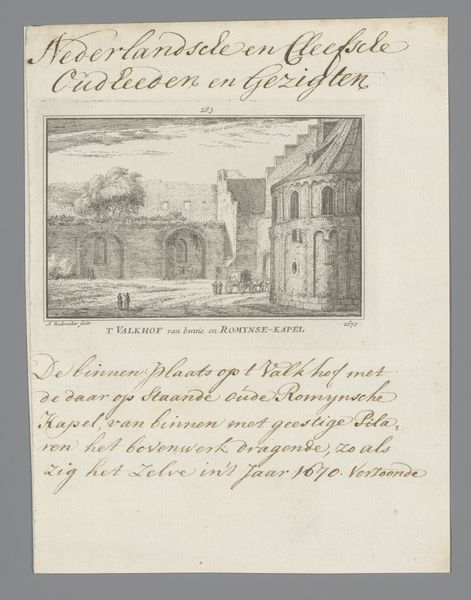 Nederlandsche en Cleefsche
Oudheeden en Gezigten
283
A. Rademaker fecit
T VALKHOF van binne en ROMYNSE-KAPEL
1670
De binnen plaats op t Valk hof met
de daar op Staande oude Romynsche
Kapel, van binnen met geestige Pila,,
ren het bovenwerk dragende, zo als
zig het Zelve in't Jaar 1670. Vertoonde